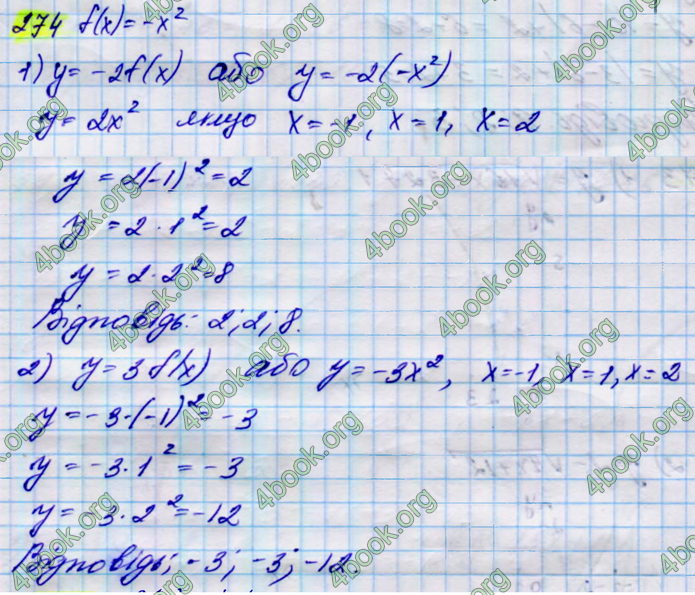 274 f(x) = -x²
1) y = -2f(x) або y = -2(-x²)
y = 2x² якщо x = -1, x = 1, x = 2
y = 2(-1)² = 2
y = 2 · 1² = 2
y = 2 · 2² = 8
Відповідь: 2; 2; 8.
2) y = 3f(x) або y = -3x², x = -1, x = 1, x = 2
y = -3 · (-1)² = -3
y = -3 · 1² = -3
y = -3 · 2² = -12
Відповідь; -3; -3; -12.
4book.org